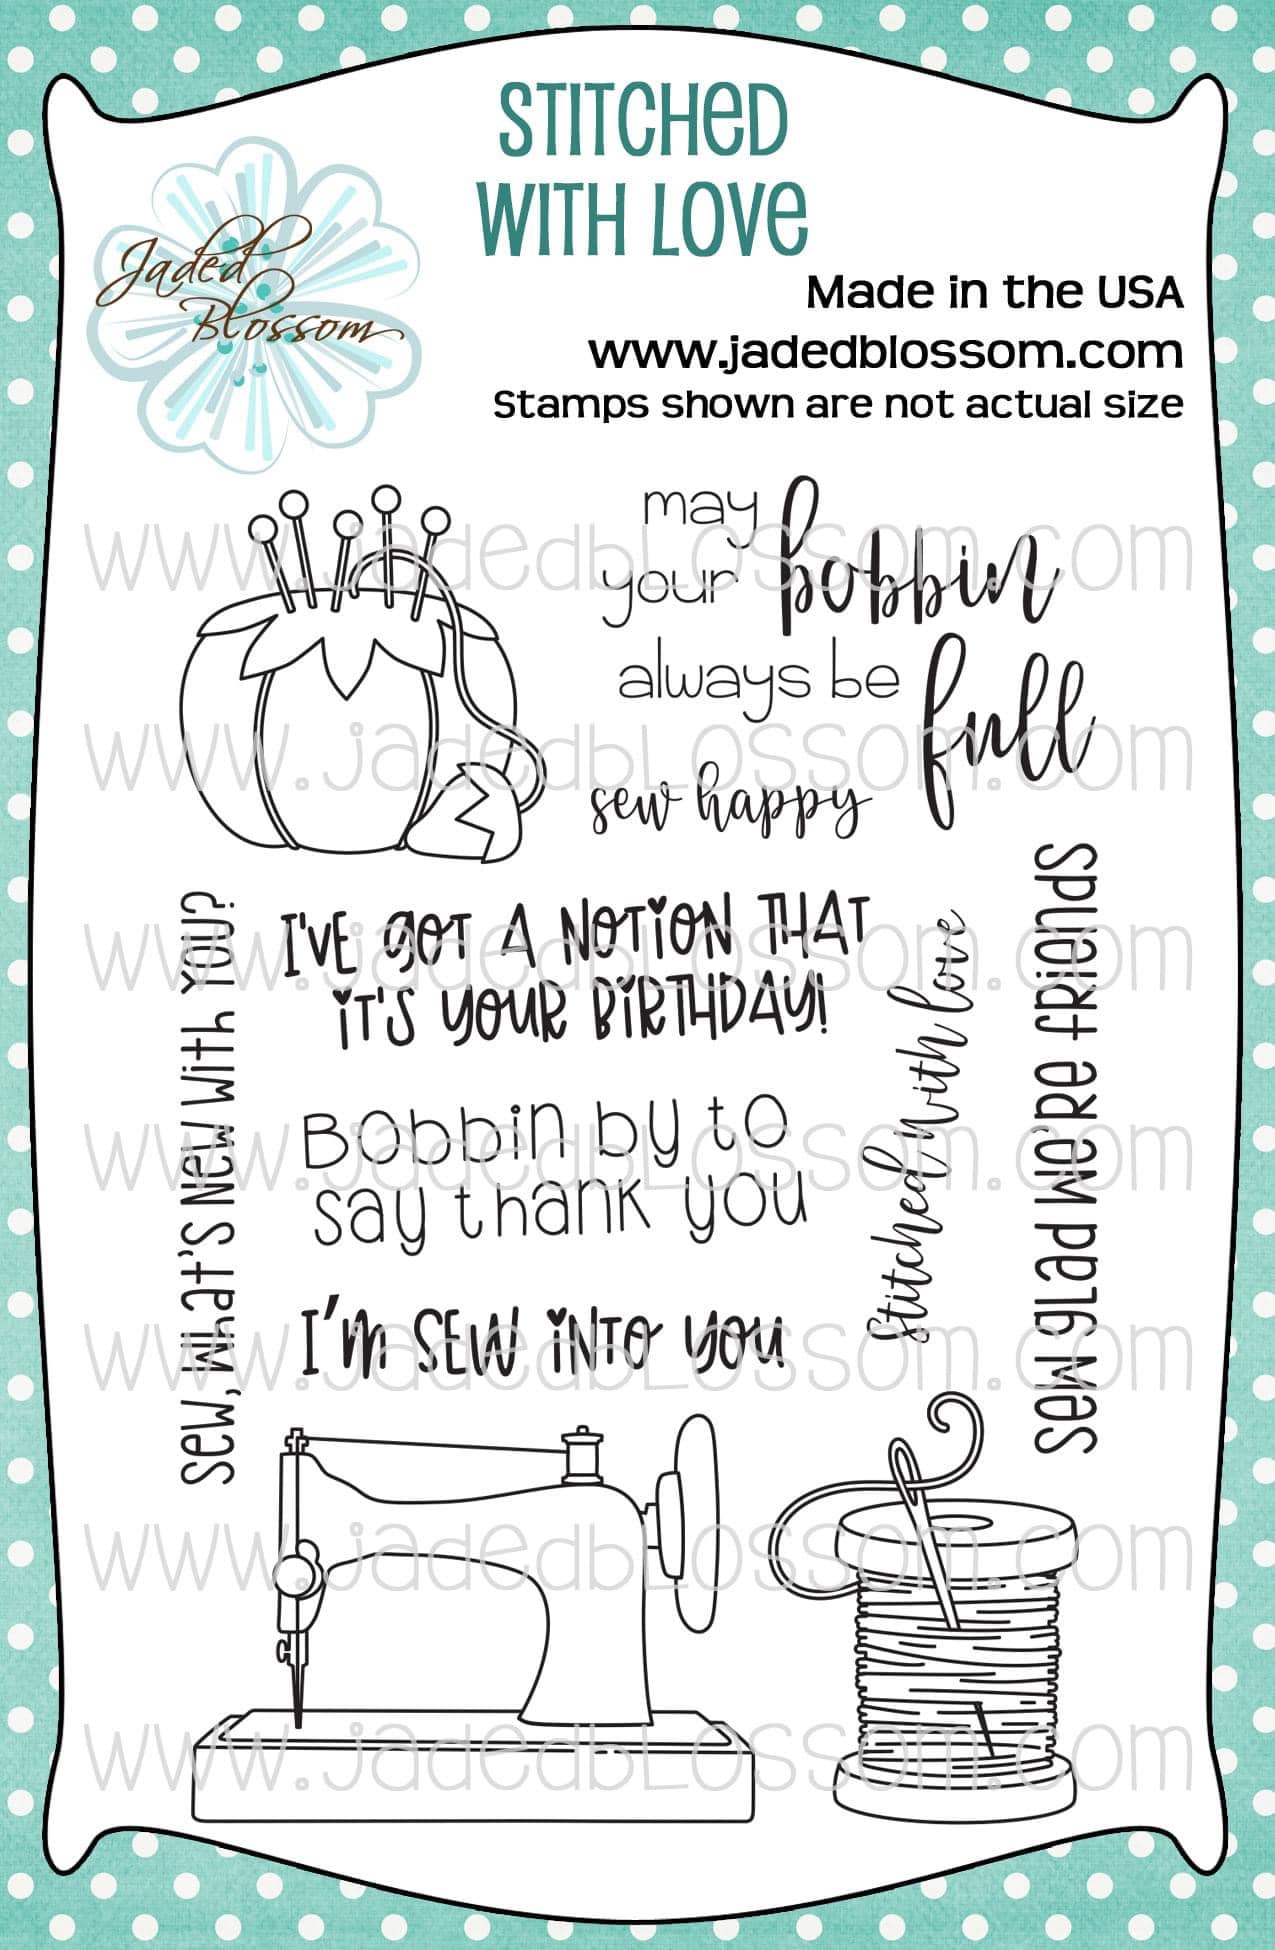 STITCHED
WITH LOVE
Jaded
Blossom
Made in the USA
www.jadedblossom.com
Stamps shown are not actual size
may
your bobbin
always be
full
sew happy
www.jadedblossom.com
www.jadedblossom.com
SEW, WHAT'S NEW WITH YOU?
I'VE GOT A NOTION THAT
IT'S YOUR BIRTHDAY!
www.jadedblossom.com
Stitched with love
SEW GLAD WE'RE FRIENDS
Bobbin by to
say thank you
www.jadedblossom.com
I'M SEW INTO YOU
www.jadedblossom.com
www.jadedblossom.com
www.jadedblossom.com